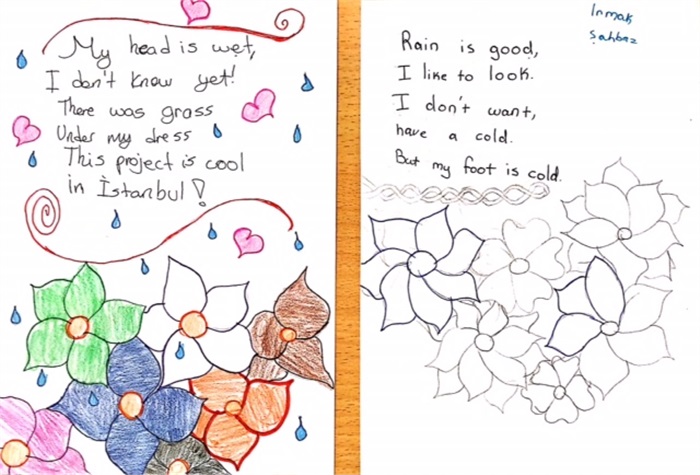 My head is wet,
I don't know yet!
There was grass
Under my dress
This project is cool
in İstanbul!
Irmak
Şahbaz
Rain is good,
I like to look.
I don't want,
have a cold.
But my foot is cold.